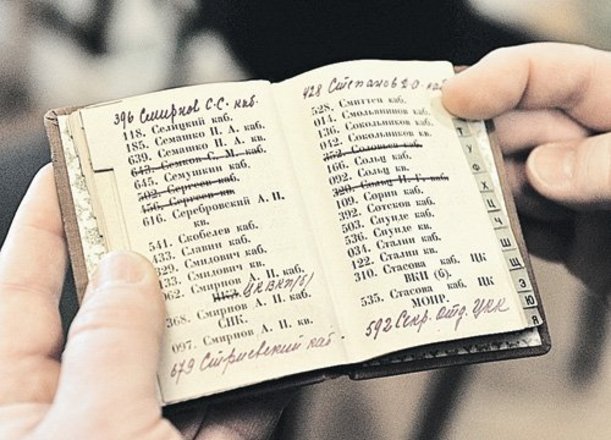 396 Смирнов С.С. каб.
118. Селицкий каб.
185. Семашко Н. А. каб.
639. Семашко Н. А. кв.
643. Семков С. М. каб.
645. Семушкин каб.
502. Сергеев каб.
456. Сергеев кв.
616. Серебровский А. П.
кв.
541. Скобелев каб.
433. Славин каб.
329. Смилович каб.
433. Смилович кв.
062. Смирнов А. П. каб.
НКЗ ЦКВКП(б)
368. Смирнов А. П. каб.
СНК.
097. Смирнов А. П. кв.
679 Стриевский каб.
428 Степанов В.О. каб.
528. Смиттен каб.
014. Смольянинов каб.
136. Сокольников каб.
042. Сокольников кв.
352. Соловьев каб.
166. Сольц каб.
092. Сольц кв.
320. Сольц И. Г. каб.
109. Сорин каб.
392. Сотсков каб.
503. Спунде каб.
536. Спунде кв.
034. Сталин каб.
122. Сталин кв.
310. Стасова каб. ЦК
ВКП (б).
535. Стасова каб. ЦК
МОПР.
592 Секр. Отд. ЦКК
Т
У
Ф
Х
Ц
Ч
Ш
Щ
Э
Ю
Я